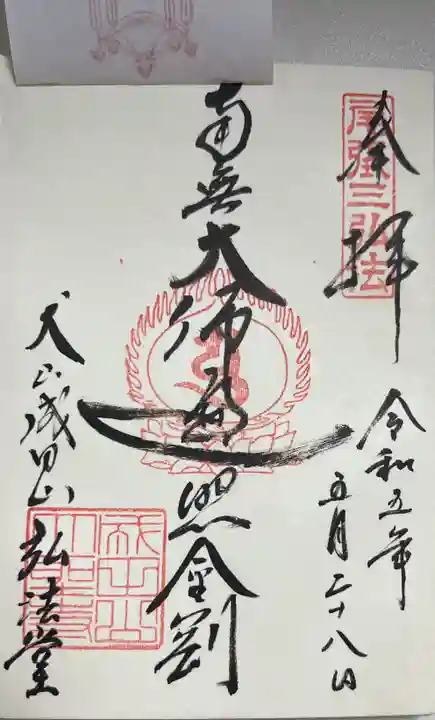 奉拝
尾張三弘法
令和五年
五月二十八日
南無大師遍照金剛
犬山成田山 弘法堂